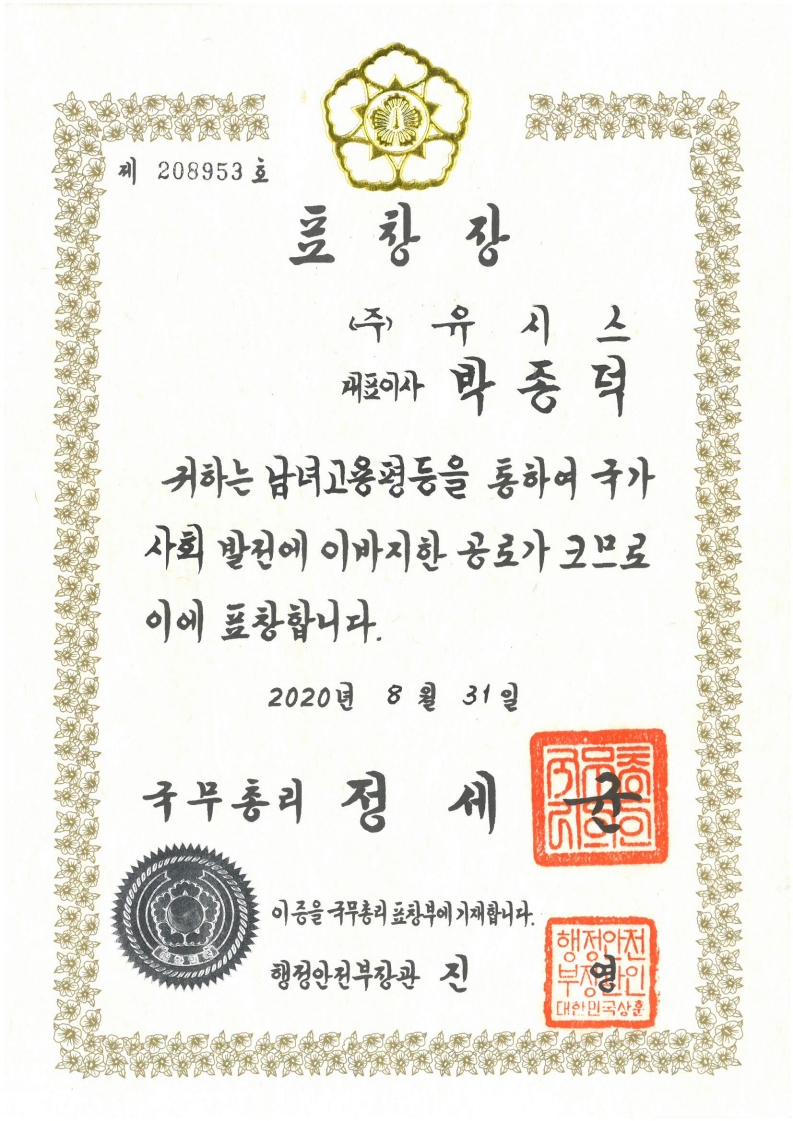 제 208953 호
표창장
(주) 유시스
대표이사 박종덕
귀하는 남녀고용평등을 통하여 국가
사회 발전에 이바지한 공로가 크므로
이에 표창합니다.
2020년 8월 31일
국무총리 정세균
이 증을 국무총리 표창부에 기재합니다.
행정안전부장관 진영
행정안전
부장관인
대한민국상훈